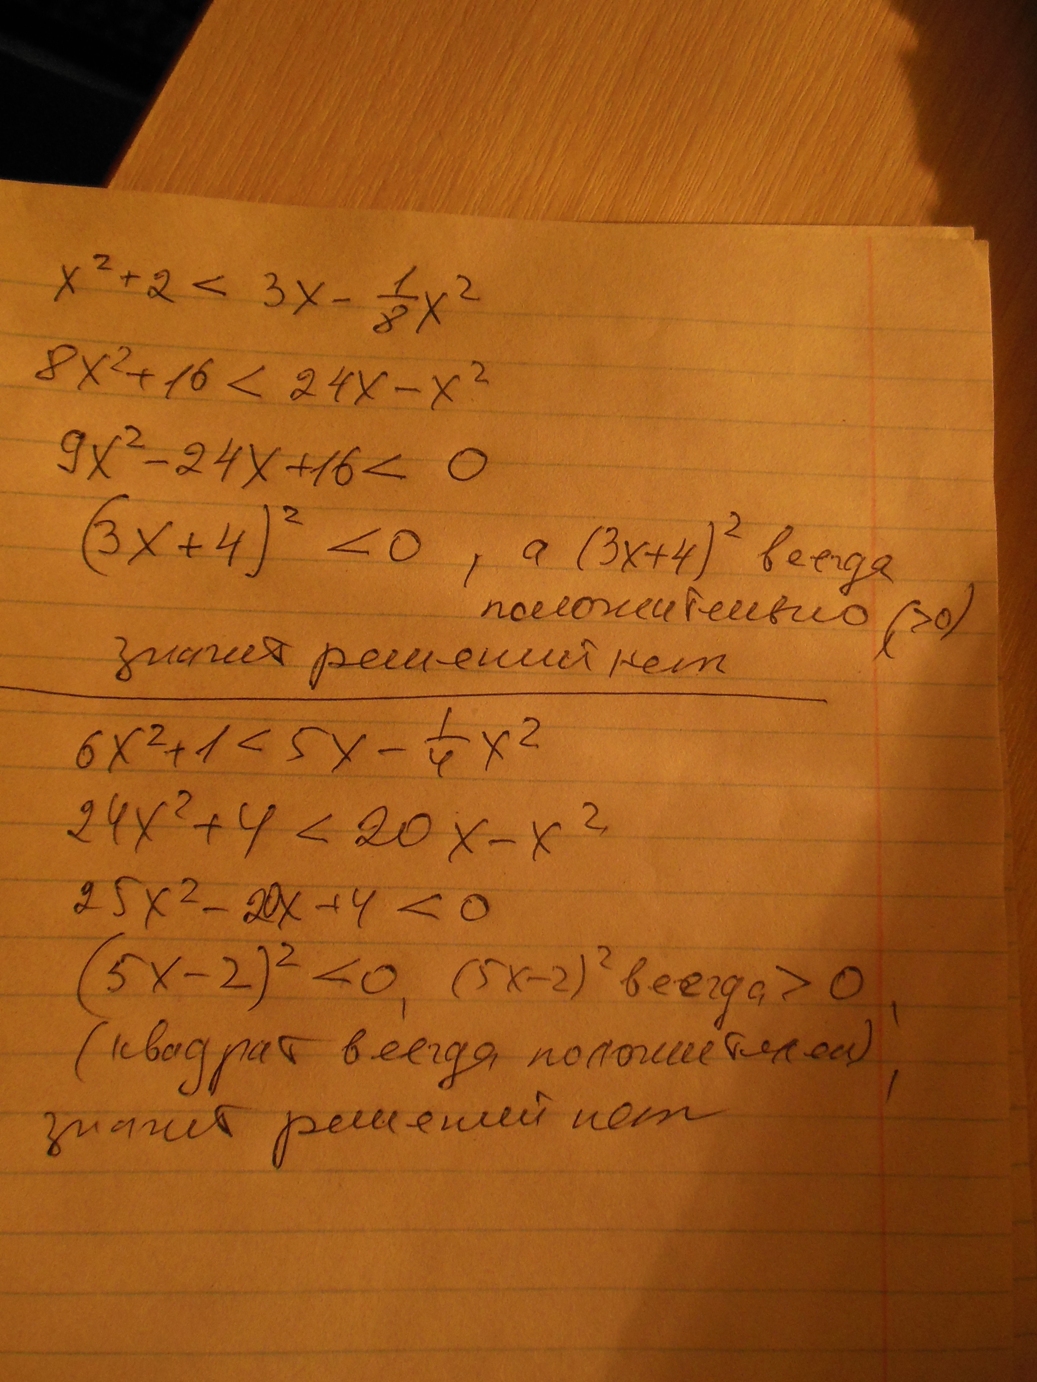 x² + 2 < 3x - 1/8 x²
8x² + 16 < 24x - x²
9x² - 24x + 16 < 0
(3x + 4)² < 0 , а (3x+4)² всегда
положительно (>0)
значит решений нет
6x² + 1 < 5x - 1/4 x²
24x² + 4 < 20x - x²
25x² - 20x + 4 < 0
(5x - 2)² < 0, (5x-2)² всегда > 0,
(квадрат всегда положителен),
значит решений нет